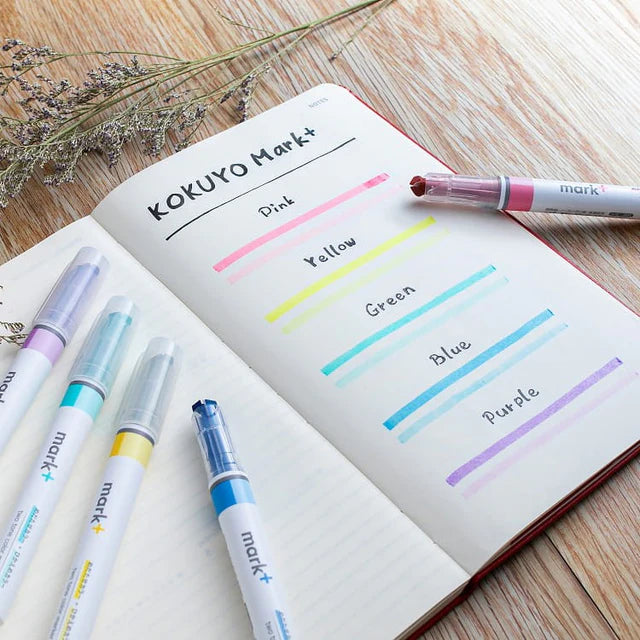 NOTES
KOKUYO Mark+
Pink
Yellow
Green
Blue
Purple
mark+
mark
mark+
mark+
mark+